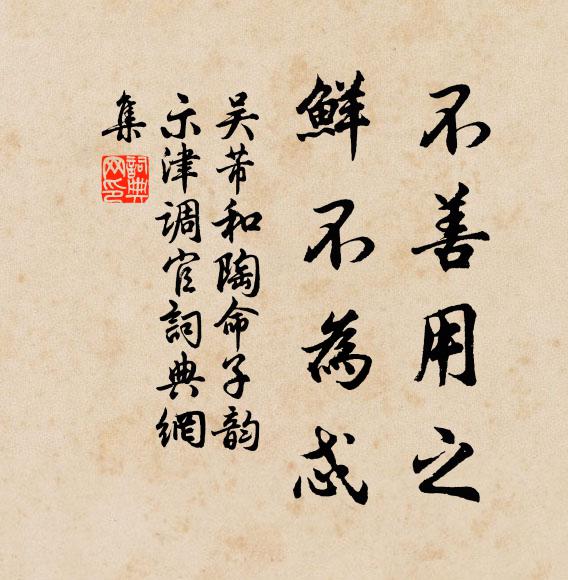 不善用之
鮮不為忒
吴芾和陶命子韵
示津調官詞典網
集
詞典
网印